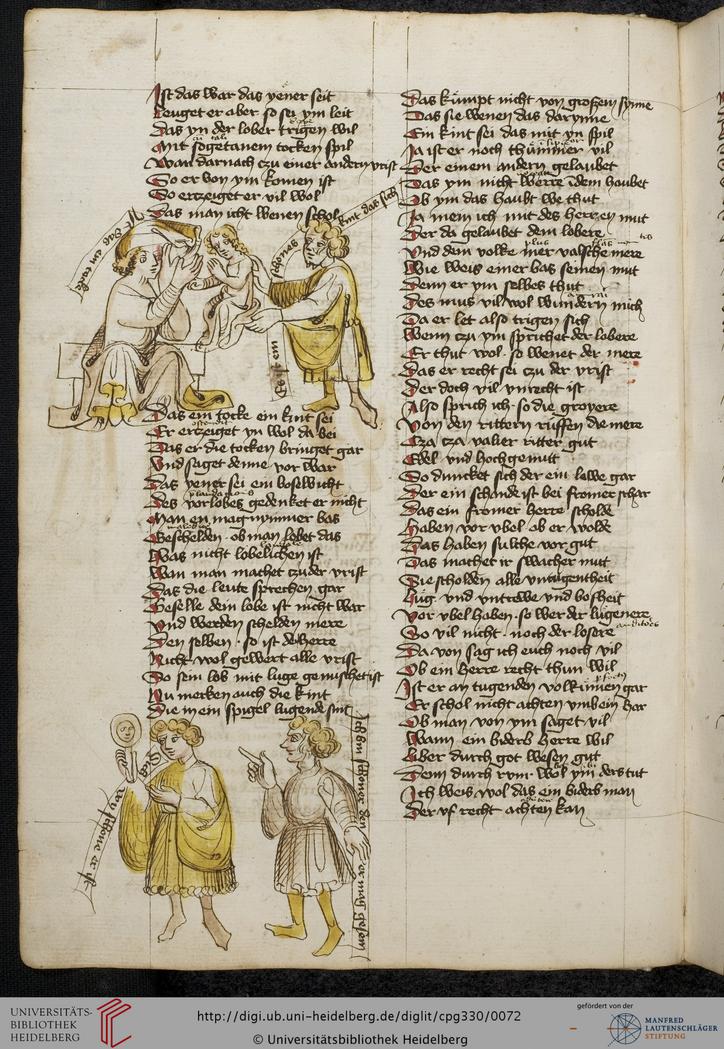 Ist das war das yener seit
Leuget er aber so sei ym leit
Das yn der lober trigen wil
Mit sogetanem tocken spil
Wan darnach czu einer andern vrist
So er von ym komen ist
So erczeiget er vil wol
Das man icht wenen schol
kint das sich
schones
Es ist ein
Das ein tocke ein kint sei
Er erczeiget yn wol da bei
Das er die tocken bringet gar
Vnd saget denne vor war
Das yener sei ein bosewicht
Des vorlobes gedenket er nicht
Man en mag nymmer bas
Geschelden ob man lobet das
Was nicht lobelichen ist
Wan man machet czu der vrist
Das die leute sprechen gar
Geselle dein lobe ist nicht war
Vnd werden schelden mere
Den selben so ist de herre
Nicht wol gewert alle vrist
So sein lob mit luge gemischet ist
Nu merken auch die kint
Die in ein spigel lugende sint
Sich
wy schone er ist
Ich bin schoner den
er mag gesein
Das kumpt nicht von großem synne
Das sie wenen das dar ynne
Ein kint sei das mit yn spil
Ja ist er noch thummer vil
Der einem andern gelaubet
Das ym nicht werre in dem haubet
Ob ym das haubt we thut
Ja mein ich mit des herren mut
Der da gelaubet dem lobere
Vnd dem volke mer valsche mere
Wie weis einer bas seinen mut
Denn er ym selbes thut
Des mus vil wol wundern mich
Da er let also trigen sich
Wenn czu ym sprichet der lobere
Er thut wol so wenet der mere
Das er recht sei czu der vrist
Der doch vil vnrecht ist
Also sprich ich so die groyere
Von den rittern ruffen die mere
Cza cza valier ritter gut
Edel vnd hochgemut
So duncket sich der ein lewe gar
Der ein schande ist bei fromer schar
Das ein fromer herre scholde
Haben vor vbel ab er wolde
Das haben sulche vor gut
Das machet ir swacher mut
Sie scholden alle vntugentheit
Lug vnd vntrewe vnd bosheit
Vor vbel haben so wer der lugenere
So vil nicht noch der losere
Da von sag ich euch noch vil
Ob ein herre recht thun wil
Ist er an tugenden volkumen gar
Er schol nicht achten vmb ein har
Ob man von ym saget vil
Wann ein biderb herre wil
Liber durch got wesen gut
Denn durch rum wol ym ders tut
Ich weis wol das ein biderb man
Der vf recht achten kan
UNIVERSITÄTS-
BIBLIOTHEK
HEIDELBERG
http://digi.ub.uni-heidelberg.de/diglit/cpg330/0072
© Universitätsbibliothek Heidelberg
gefördert von der
MANFRED
LAUTENSCHLÄGER
STIFTUNG